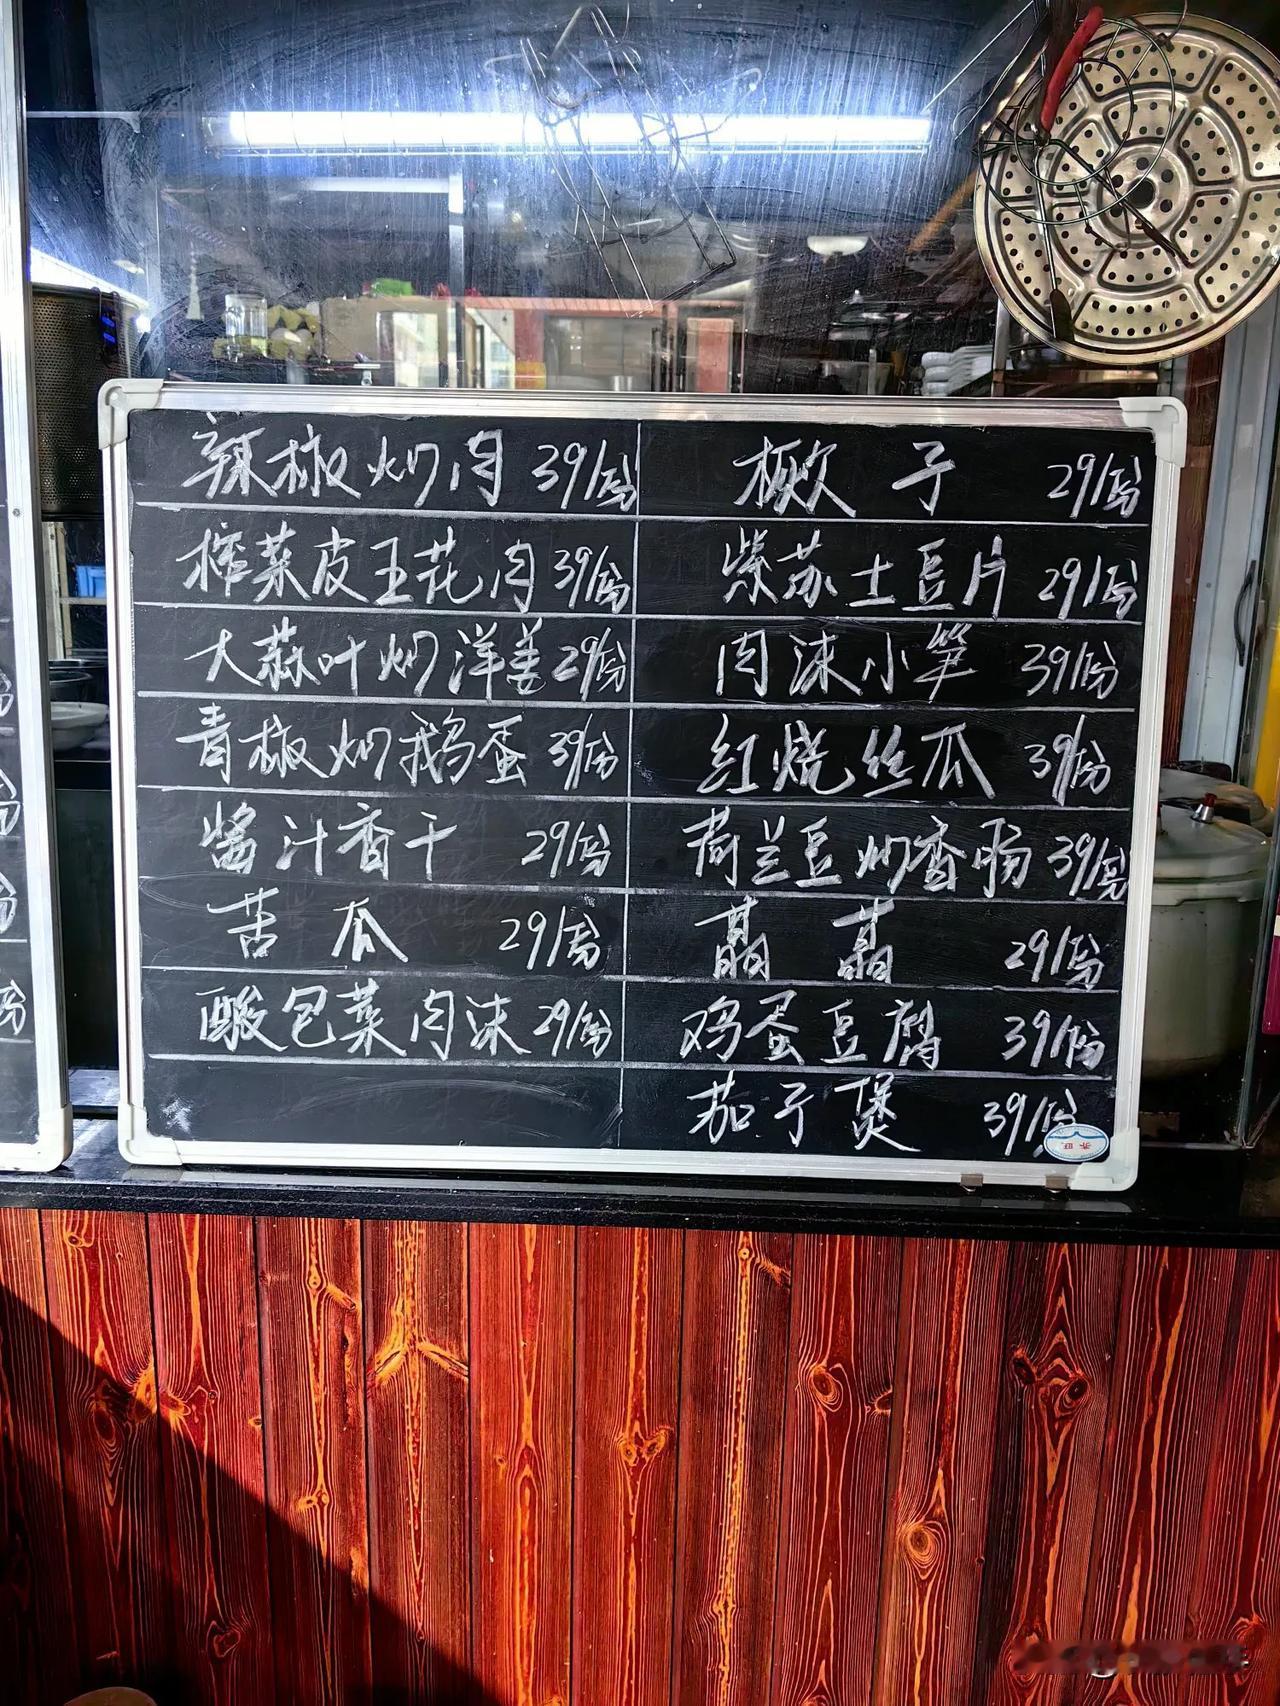 辣椒炒肉 39/份
榨菜皮王花肉 39/份
大蒜叶炒洋姜 29/份
青椒炒鹅蛋 39/份
酱汁香干 29/份
苦瓜 29/份
酸包菜肉沫 29/份
橛子 29/份
紫苏土豆片 29/份
肉沫小笋 39/份
红烧丝瓜 39/份
荷兰豆炒香肠 39/份
29/份
鸡蛋豆腐 39/份
茄子煲 39/份